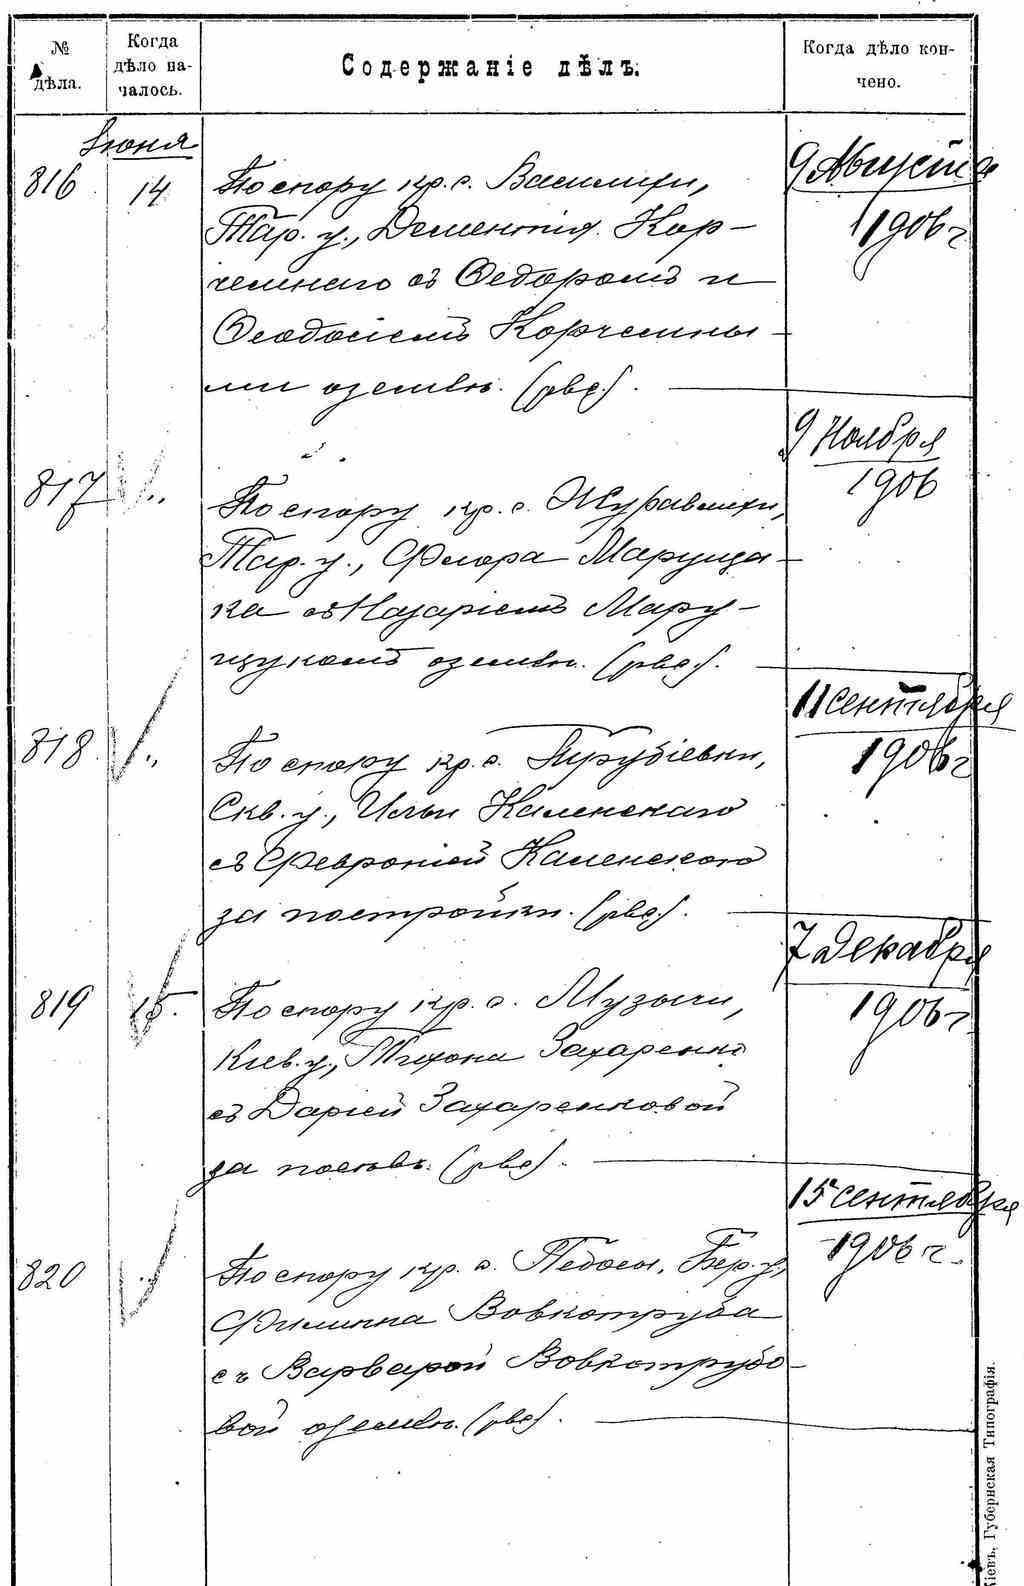 № дѣла.
Когда дѣло на-чалось.
Содержаніе дѣлъ.
Когда дѣло кон-чено.
Іюня
816 14 По спору кр. с. Василихи,
Тар. у., Дементія Кор-
чемнаго съ Ѳедоромъ и
Ѳеодосіемъ Корчемны-
ми о землѣ. (рве).
9 Августа
1906 г
817 По спору кр. с. Журавлихи,
Тар. у., Флора Марущa-
ка съ Назаріемъ Мару-
щукомъ о землѣ. (рве).
9 Ноября
1906
818 По спору кр. с. Трубіевки,
Скв. у., Ильи Каменскаго
съ Февроніей Каменскою
за постройки. (рве).
11 Сентября
1906 г
819 15. По спору кр. с. Музычи,
Кіев. у., Тихона Захаренко
съ Даріей Захаренковой
за посѣвъ. (рве).
7 Декабря
1906 г
820 По спору кр. с. Педосы, Бер. у.,
Филиппа Вовкотруба
съ Варварой Вовкотрубо-
вой о землѣ. (рве).
15 Сентября
1906 г.
Кіевъ, Губернская Типографія.